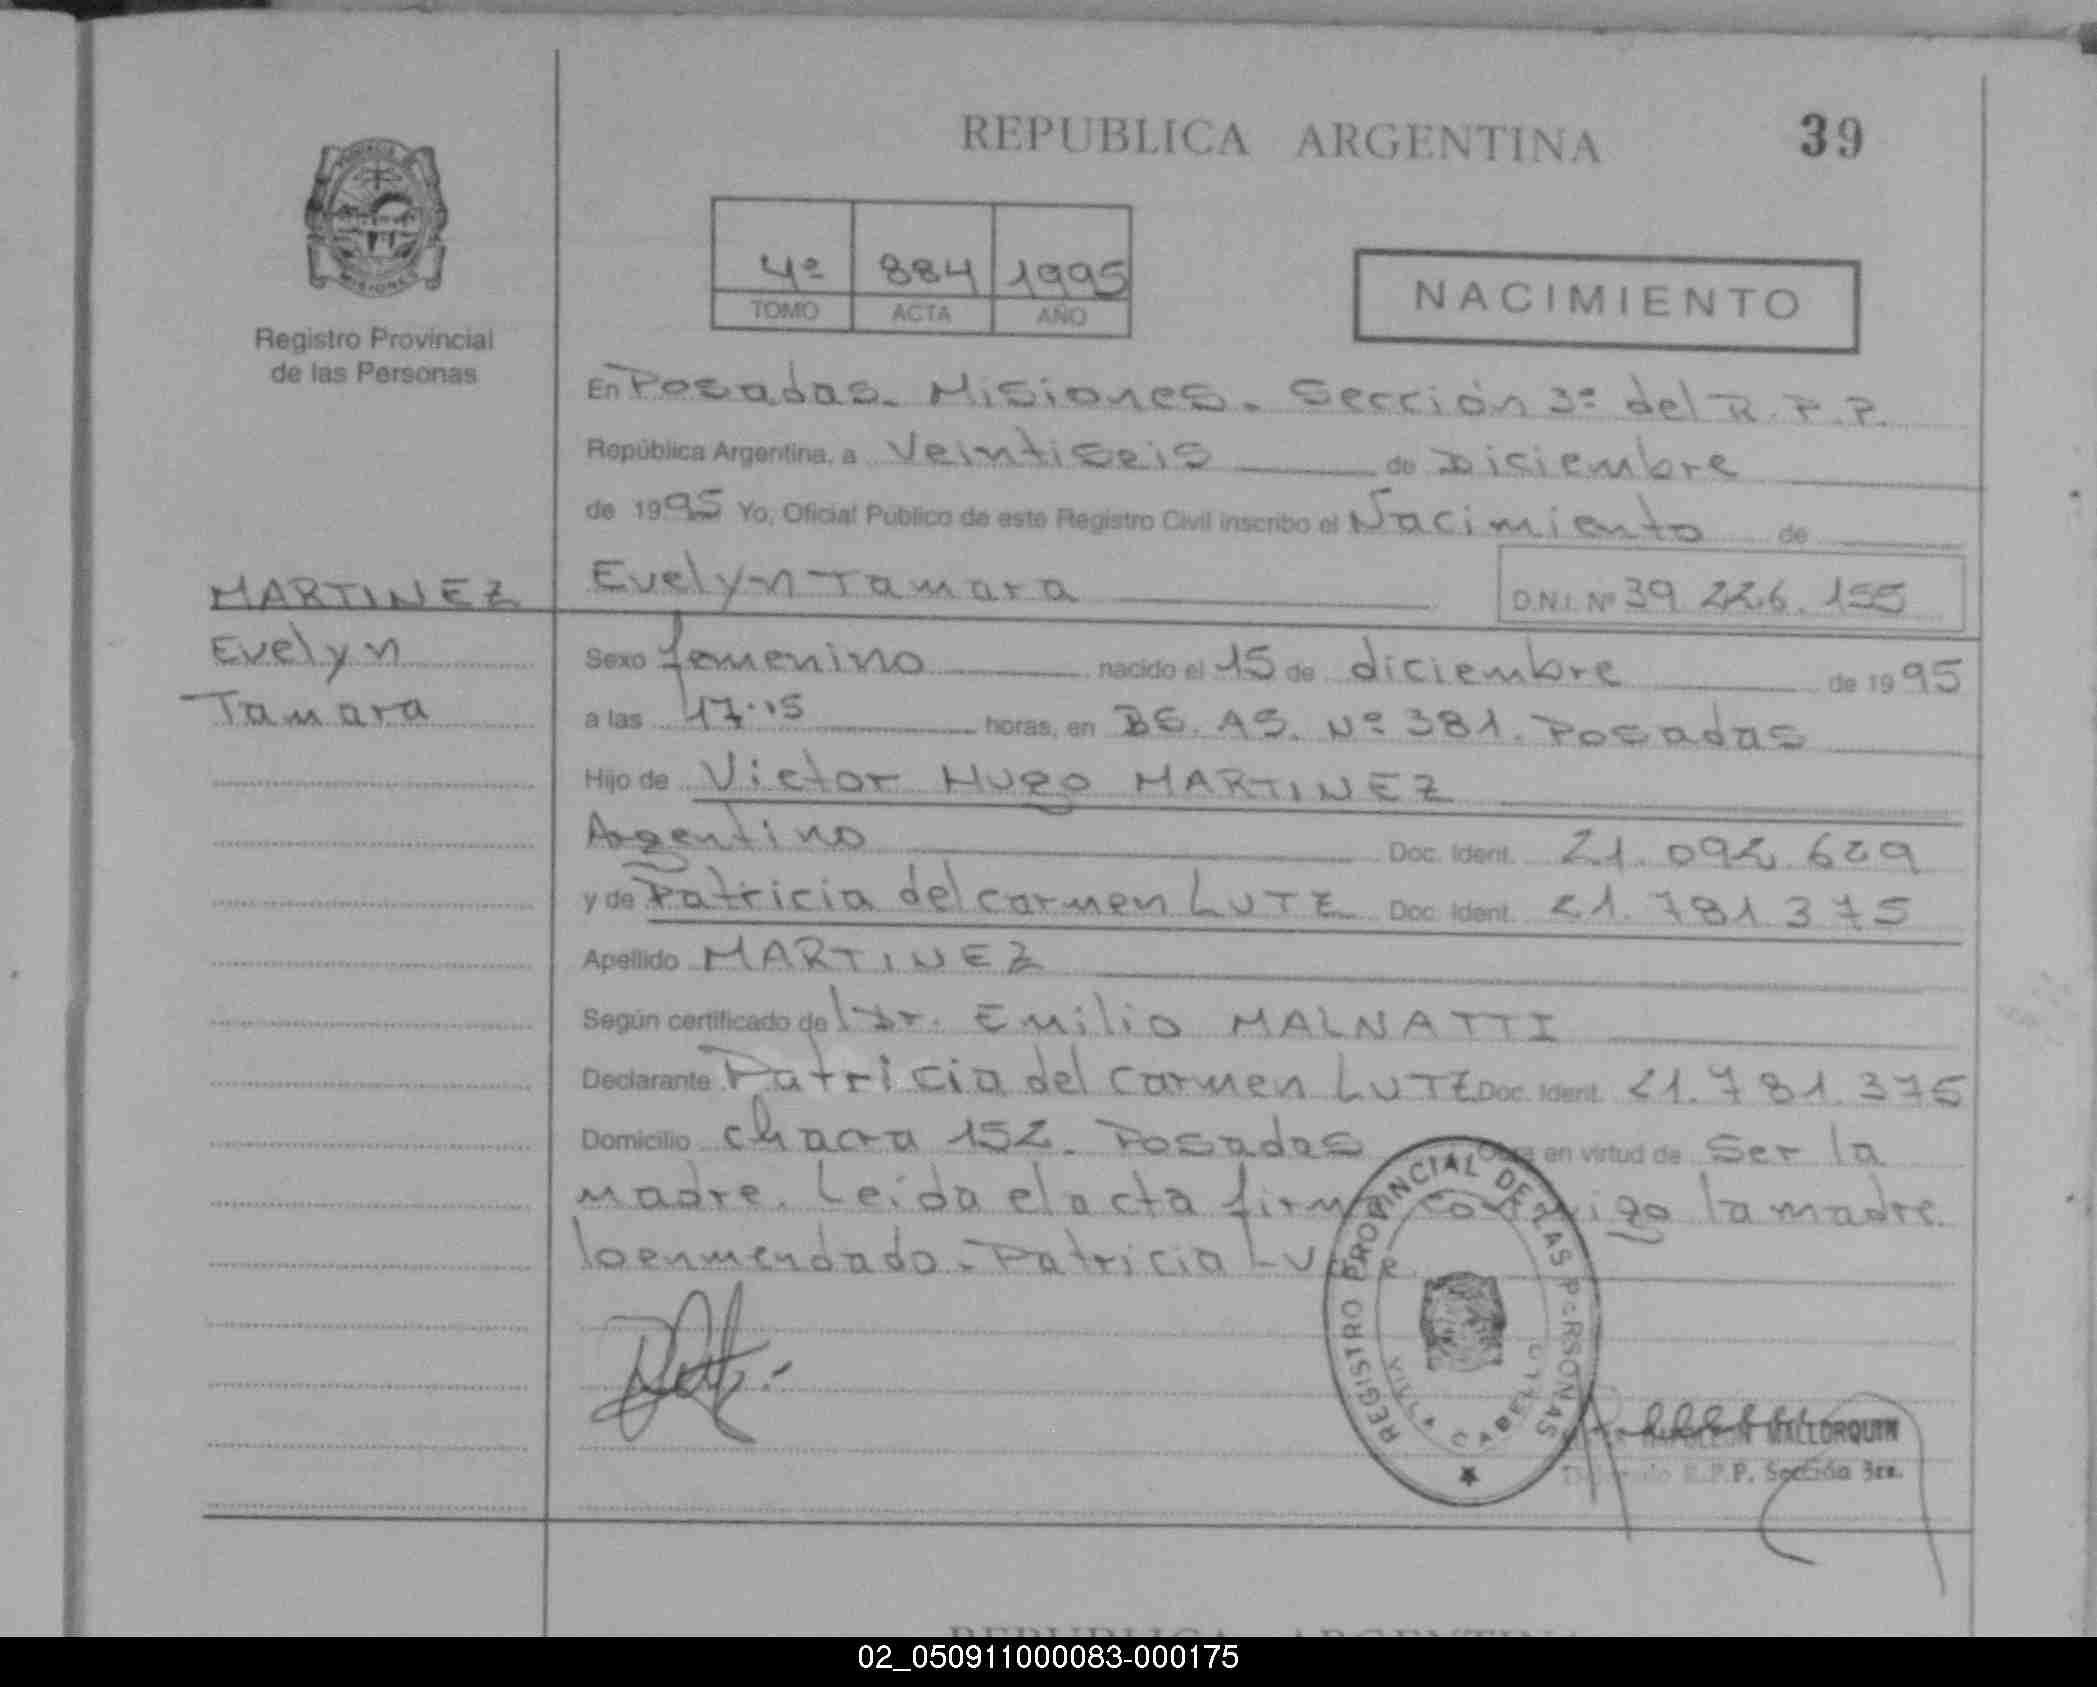 REPUBLICA ARGENTINA
39
4º 884 1995
TOMO ACTA AÑO
NACIMIENTO
Registro Provincial
de las Personas
En Posadas. Misiones. Sección 3ª del R.P.P.
República Argentina, a Veintiseis de Diciembre
de 1995 Yo, Oficial Público de este Registro Civil inscribo el Nacimiento de
MARTINEZ
Evelyn
Tamara
Evelyn Tamara D.N.I. Nº 39.226.155
Sexo femenino nacido el 15 de diciembre de 1995
a las 17.15 horas, en BS. AS. Nº 381. Posadas
Hijo de Victor Hugo MARTINEZ
Argentino Doc. Ident. 21.092.629
y de Patricia del Carmen LUTZ Doc. Ident. 21.781.375
Apellido MARTINEZ
Según certificado del Dr. Emilio MALNATTI
Declarante Patricia del Carmen LUTZ Doc. Ident. 21.781.375
Domicilio chacra 152. Posadas Obra en virtud de ser la
madre. Leida el acta firma conmigo la madre.
lo enmendado. Patricia Vale
REGISTRO PROVINCIAL DE LAS PERSONAS
VILLA CABELLO
MALLORQUIN
R.P.P. Sección 3ra.
REPUBLICA ARGENTINA
02_050911000083-000175